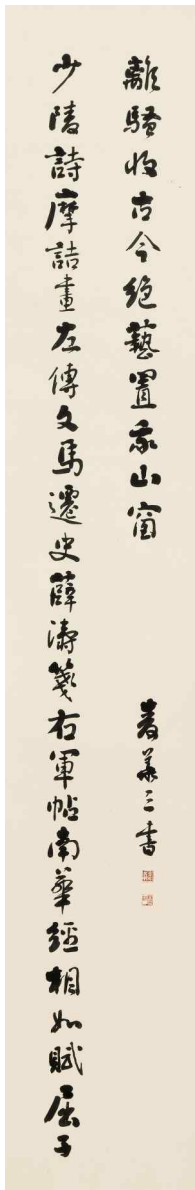 少陵詩摩詰畫左傳文馬遷史薛濤箋右軍帖南華經相如賦屈子
離騷收古今絕藝置我山窗
三書